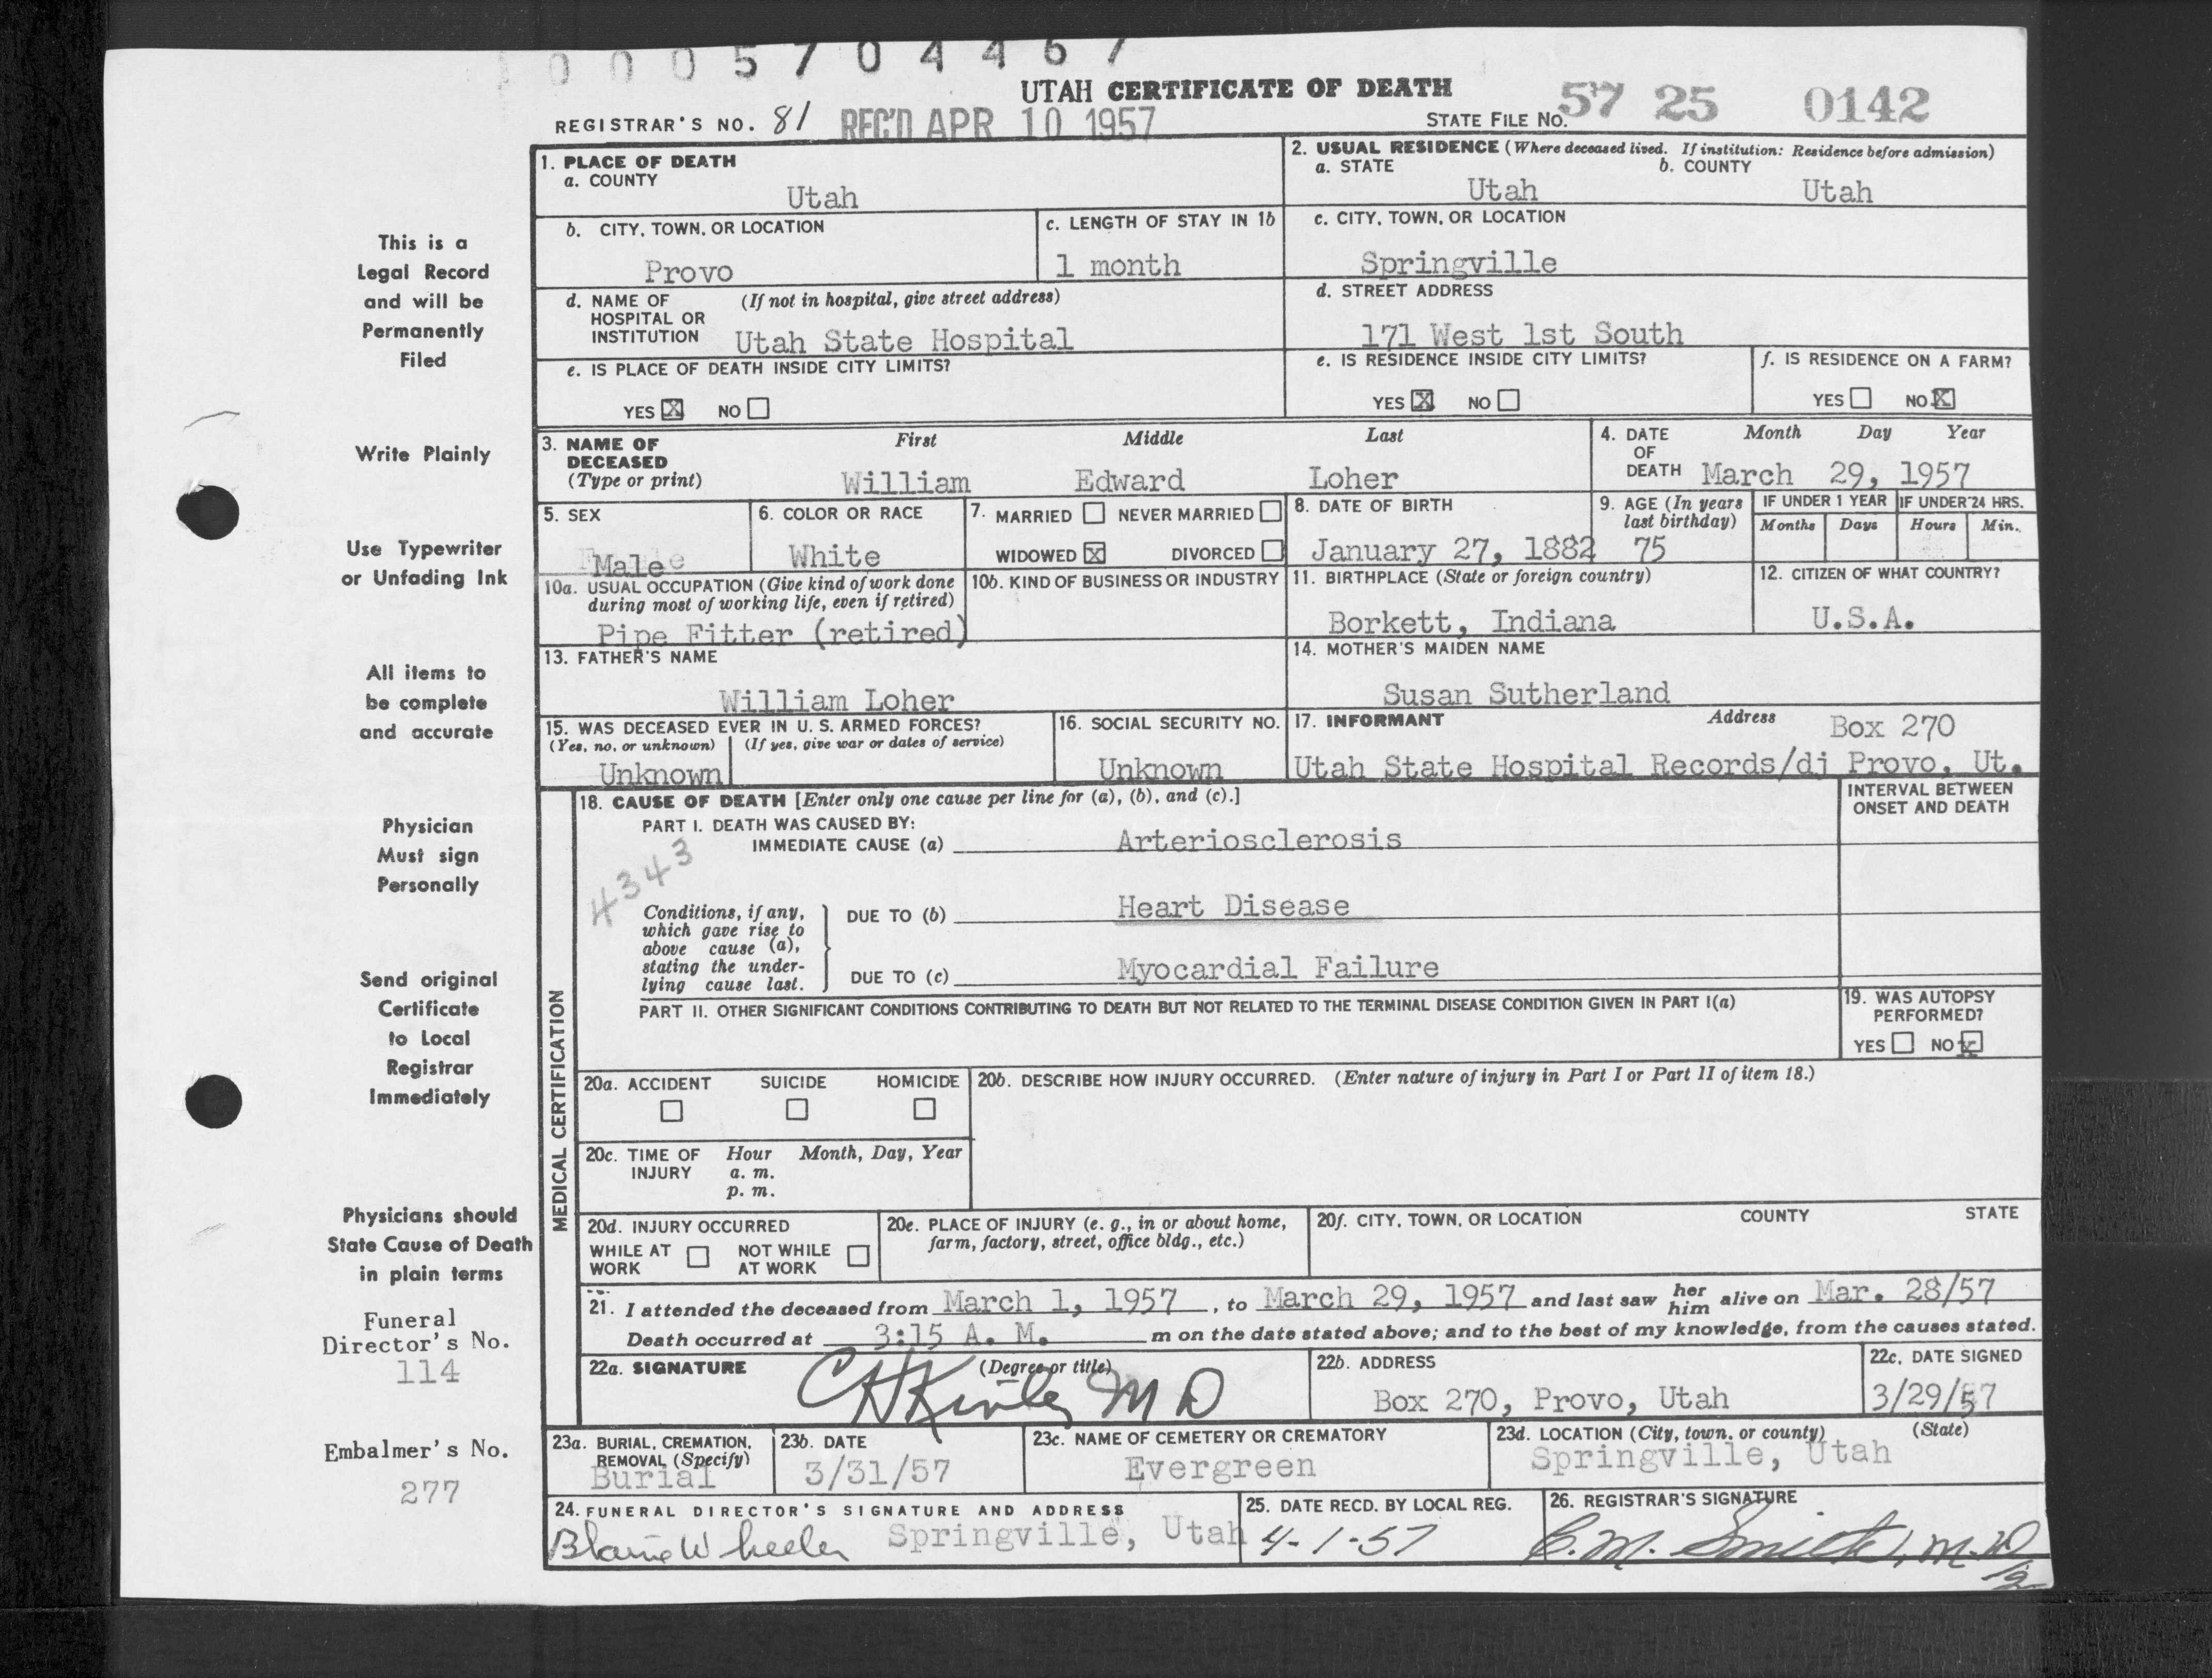 0005704467
UTAH CERTIFICATE OF DEATH
REGISTRAR'S NO. 81 REC'D APR 10 1957 STATE FILE NO. 57 25 0142
1. PLACE OF DEATH
a. COUNTY
Utah
2. USUAL RESIDENCE (Where deceased lived. If institution: Residence before admission)
a. STATE b. COUNTY
Utah Utah
b. CITY, TOWN, OR LOCATION
Provo
c. LENGTH OF STAY IN 1b
1 month
c. CITY, TOWN, OR LOCATION
Springville
d. NAME OF HOSPITAL OR INSTITUTION (If not in hospital, give street address)
Utah State Hospital
d. STREET ADDRESS
171 West 1st South
e. IS PLACE OF DEATH INSIDE CITY LIMITS?
YES X NO
e. IS RESIDENCE INSIDE CITY LIMITS?
YES X NO
f. IS RESIDENCE ON A FARM?
YES NO X
3. NAME OF DECEASED (Type or print)
First Middle Last
William Edward Loher
4. DATE OF DEATH
Month Day Year
March 29, 1957
5. SEX
Male
6. COLOR OR RACE
White
7. MARRIED NEVER MARRIED
WIDOWED X DIVORCED
8. DATE OF BIRTH
January 27, 1882
9. AGE (In years last birthday)
75
IF UNDER 1 YEAR IF UNDER 24 HRS.
Months Days Hours Min.
10a. USUAL OCCUPATION (Give kind of work done during most of working life, even if retired)
Pipe Fitter (retired)
10b. KIND OF BUSINESS OR INDUSTRY
11. BIRTHPLACE (State or foreign country)
Borkett, Indiana
12. CITIZEN OF WHAT COUNTRY?
U.S.A.
13. FATHER'S NAME
William Loher
14. MOTHER'S MAIDEN NAME
Susan Sutherland
15. WAS DECEASED EVER IN U. S. ARMED FORCES?
(Yes, no, or unknown) (If yes, give war or dates of service)
Unknown
16. SOCIAL SECURITY NO.
Unknown
17. INFORMANT Address Box 270
Utah State Hospital Records/dj Provo, Ut.
MEDICAL CERTIFICATION
18. CAUSE OF DEATH [Enter only one cause per line for (a), (b), and (c).]
INTERVAL BETWEEN ONSET AND DEATH
PART I. DEATH WAS CAUSED BY:
IMMEDIATE CAUSE (a) Arteriosclerosis
4343
Conditions, if any, which gave rise to above cause (a), stating the underlying cause last.
DUE TO (b) Heart Disease
DUE TO (c) Myocardial Failure
PART II. OTHER SIGNIFICANT CONDITIONS CONTRIBUTING TO DEATH BUT NOT RELATED TO THE TERMINAL DISEASE CONDITION GIVEN IN PART I(a)
19. WAS AUTOPSY PERFORMED?
YES NO X
20a. ACCIDENT SUICIDE HOMICIDE
20b. DESCRIBE HOW INJURY OCCURRED. (Enter nature of injury in Part I or Part II of item 18.)
20c. TIME OF INJURY Hour Month, Day, Year
a. m.
p. m.
20d. INJURY OCCURRED
WHILE AT WORK NOT WHILE AT WORK
20e. PLACE OF INJURY (e. g., in or about home, farm, factory, street, office bldg., etc.)
20f. CITY, TOWN, OR LOCATION COUNTY STATE
21. I attended the deceased from March 1, 1957, to March 29, 1957 and last saw her him alive on Mar. 28/57
Death occurred at 3:15 A. M. m on the date stated above; and to the best of my knowledge, from the causes stated.
22a. SIGNATURE (Degree or title)
M D
22b. ADDRESS
Box 270, Provo, Utah
22c. DATE SIGNED
3/29/57
23a. BURIAL, CREMATION, REMOVAL (Specify)
Burial
23b. DATE
3/31/57
23c. NAME OF CEMETERY OR CREMATORY
Evergreen
23d. LOCATION (City, town, or county) (State)
Springville, Utah
24. FUNERAL DIRECTOR'S SIGNATURE AND ADDRESS
Blaine Wheeler Springville, Utah
25. DATE RECD. BY LOCAL REG.
4-1-57
26. REGISTRAR'S SIGNATURE
C.M. Smith, M.D
This is a
Legal Record
and will be
Permanently
Filed
Write Plainly
Use Typewriter
or Unfading Ink
All items to
be complete
and accurate
Physician
Must sign
Personally
Send original
Certificate
to Local
Registrar
Immediately
Physicians should
State Cause of Death
in plain terms
Funeral
Director's No.
114
Embalmer's No.
277